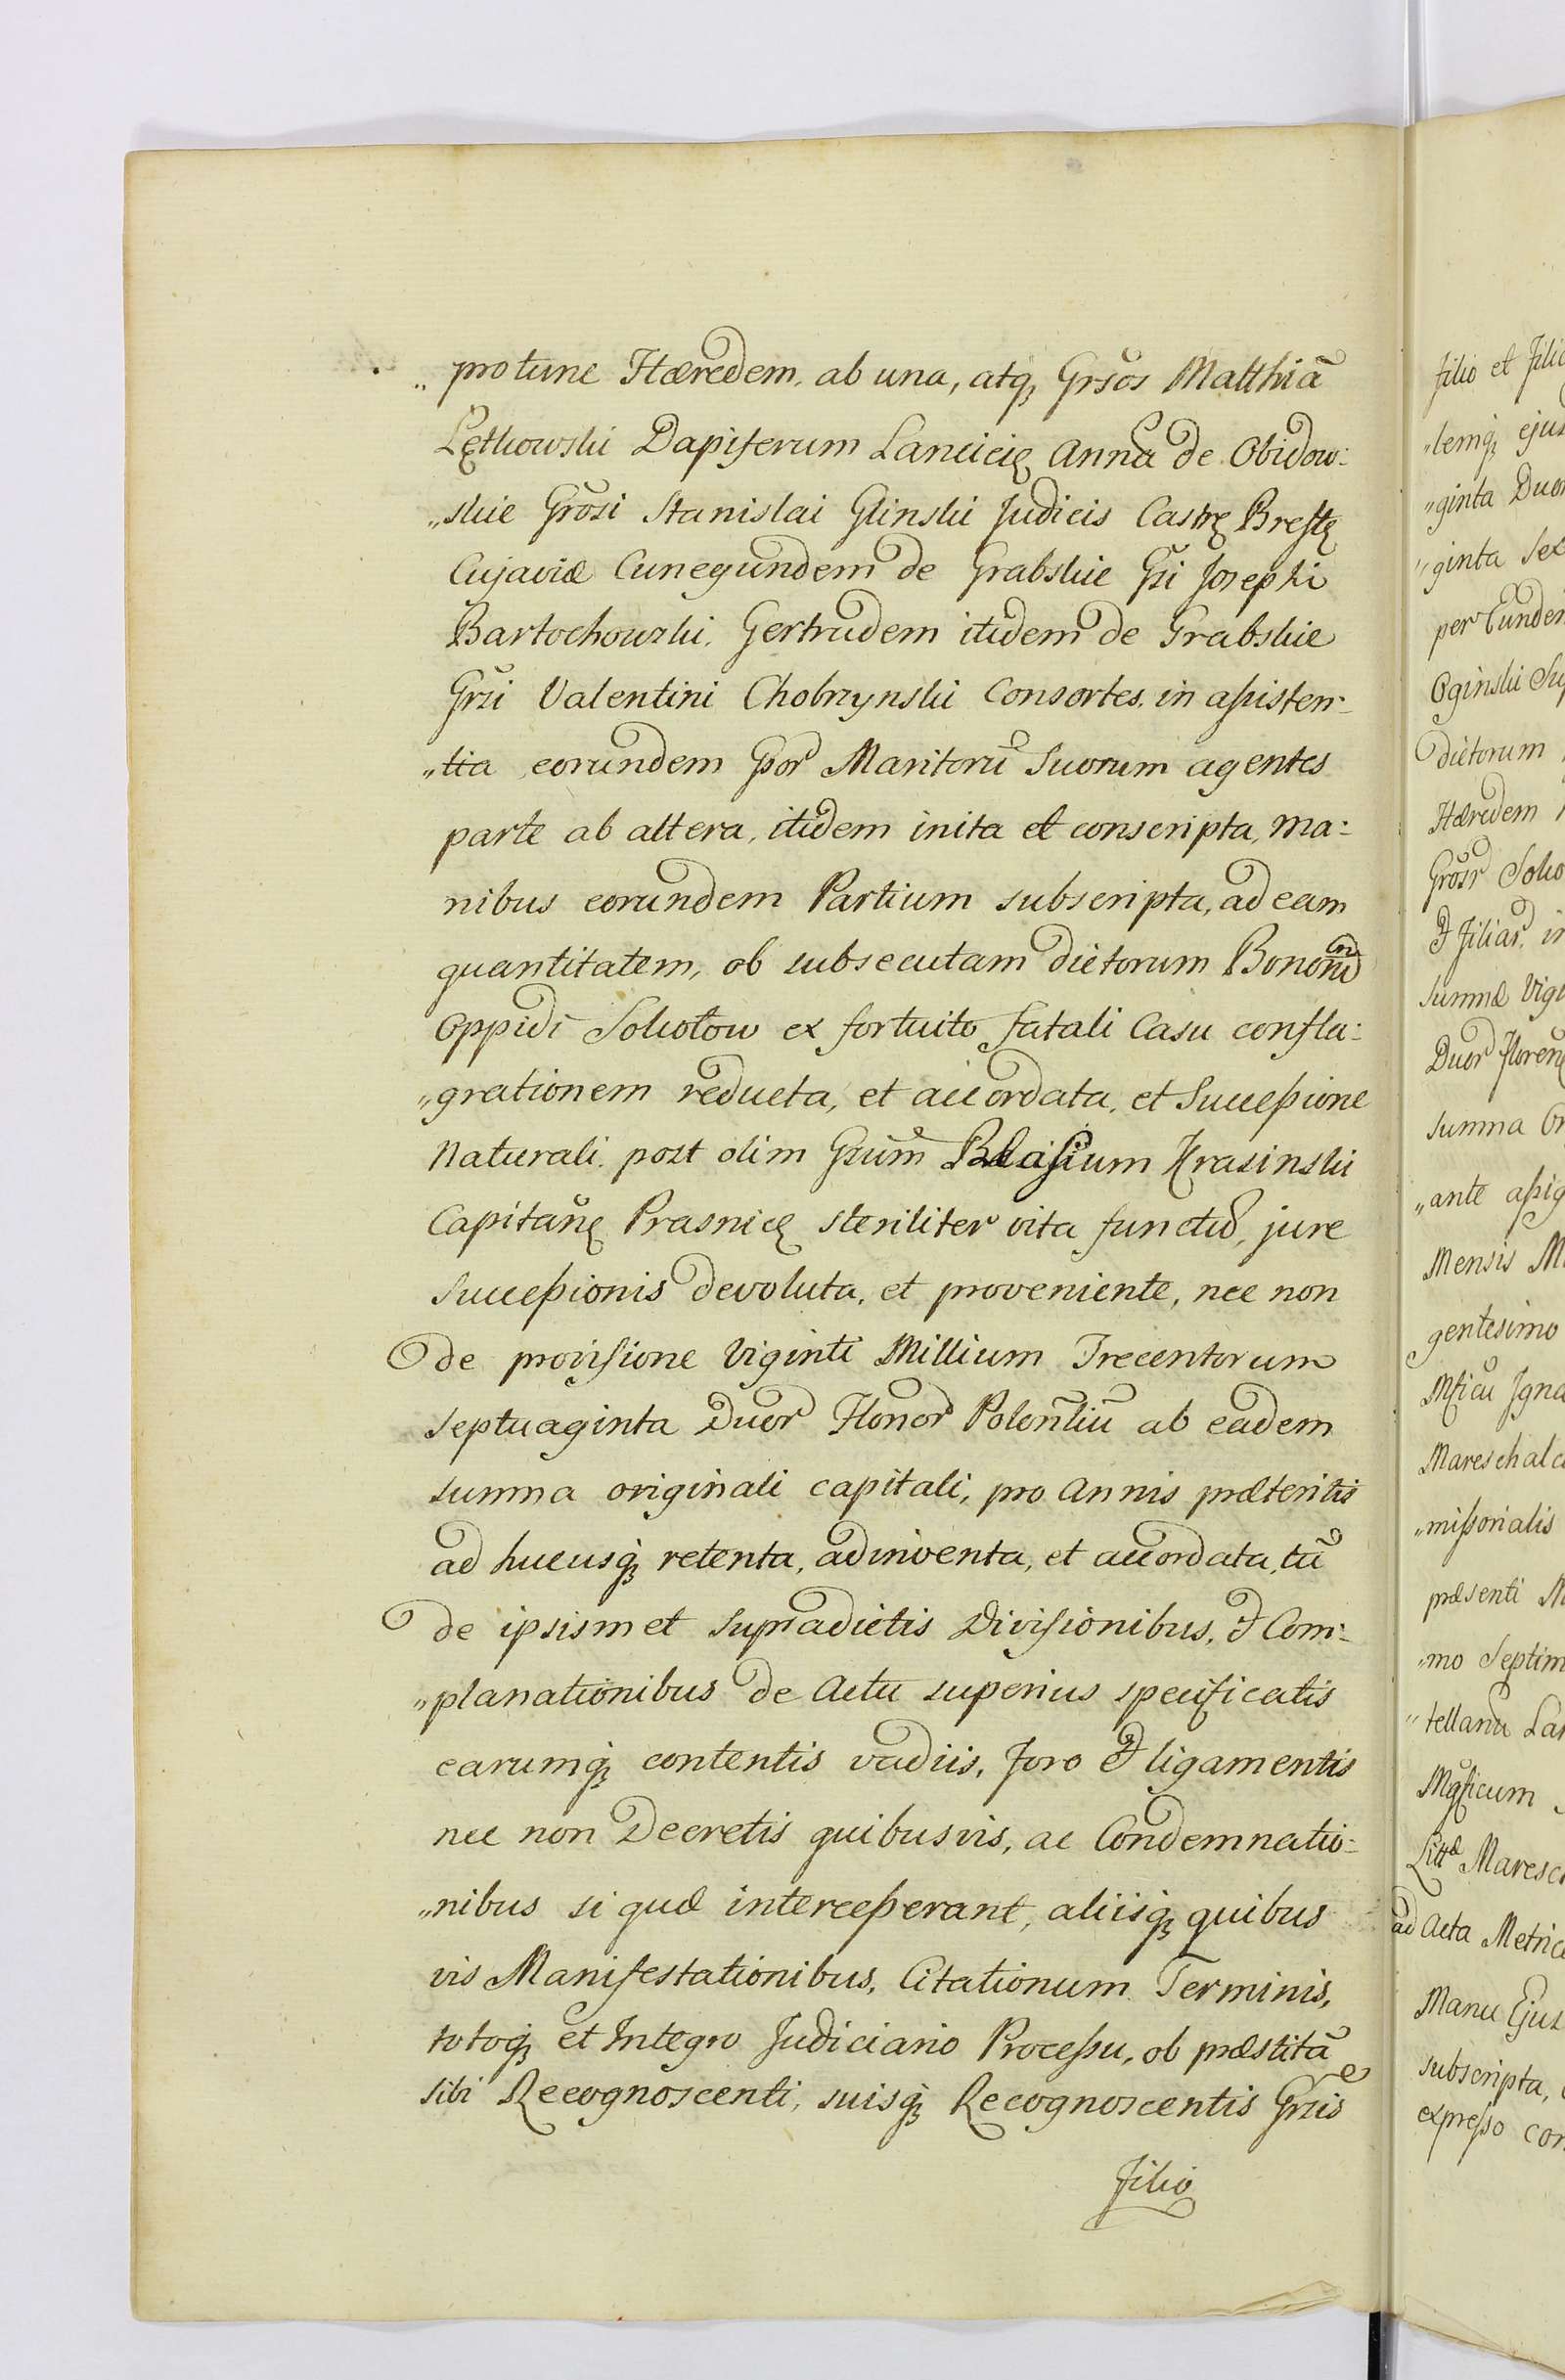 „protunc Hæredem, ab una, atq̃ Grsos Matthiã
Lętkowski Dapiferum Lancicię Annã de Obidow:
„skie Grosi Stanislai Glinski Judicis Castrę Brestę
Cujaviæ Cunegundem de Grabskie Gsi Josephi
Bartochowski, Gertrudem itidem de Grabskie
Grsi Valentini Chobrzynski Consortes, in assisten:
„tia eorundem Gsor Maritorũ Suorum agentes
parte ab altera, itidem inita et conscripta, Ma:
nibus eorundem Partium subscripta, ad eam
quantitatem, ob subsecutam dictorum Bonorũ
Oppidi Sokołow ex fortuito fatali Casu confla:
„grationem reducta, et accordata, et Successione
Naturali, post olim Gsum Blasium Krasinski
Capitanę Prasnicę steriliter vita functũ, jure
Successionis devoluta, et proveniente, nec non
de provisione Viginti Millium Trecentorum
Septuaginta Duor Florior Polonliũ ab eadem
summa originali capitali, pro Annis præteritis
ad hucusq̃ retenta, adinventa, et accordata, tũ
de ipsismet supradictis Divisionibus, & Com:
„planationibus de Actu superius specificatis
earumq̃ contentis vadiis, foro & ligamentis
nec non Decretis quibusvis, ac Condemnatio:
„nibus si quæ intercesserant, aliisq̃ quibus
vis Manifestationibus, Citationum Terminis,
totoq̃ et Integro Judiciario Processu, ob præstitã
sibi Recognoscenti, suisq̃ Recognoscentis Grsis
Filio
filio et Filia
„lemq̃ ejus
„ginta Duor
„ginta Sex
per Eundem
Oginski Su
dictorum
Hæredem
Grosr Soko
& filiar, in
Summæ Vigi
Duor floren
summa Or
„ante assig
Mensis M
gentesimo
Mficũ Igna
Mareschalc
„missorialis
præsenti M
„mo Septim
„tellanũ Lan
Mgficum
Littæ Maresc
ad Acta Metric
Manu Ejus
subscripta,
expresso con